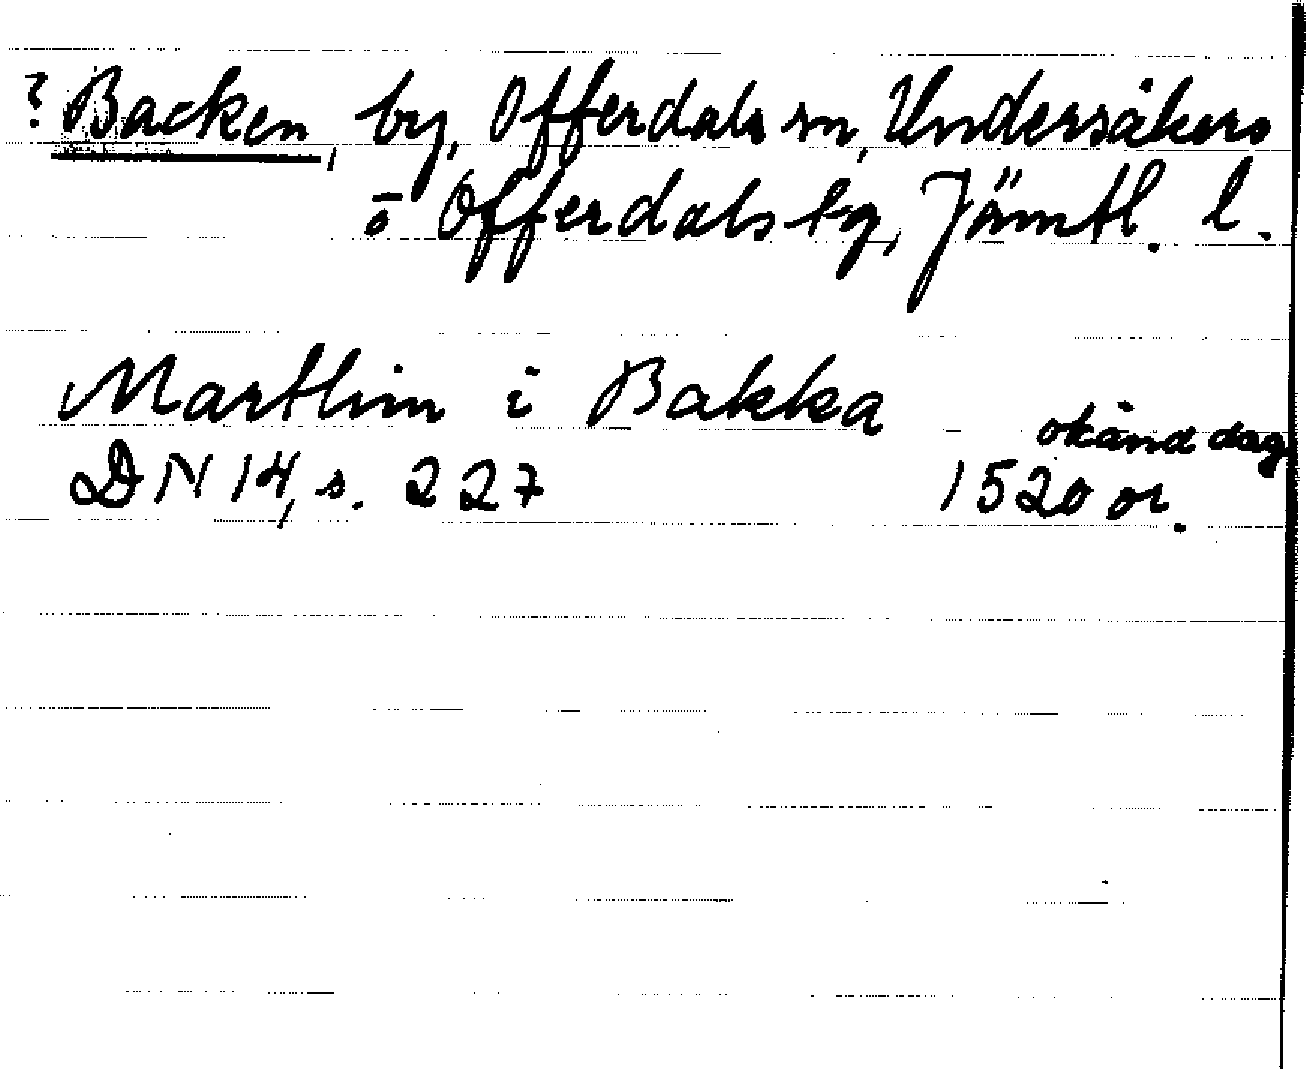 ? Backen, by, Offerdals sn, Undersåkers
o Offerdals tg, Jämtl. l.
Marthin i Bakka
okänd dag
DN 14, s. 227 1520 or.